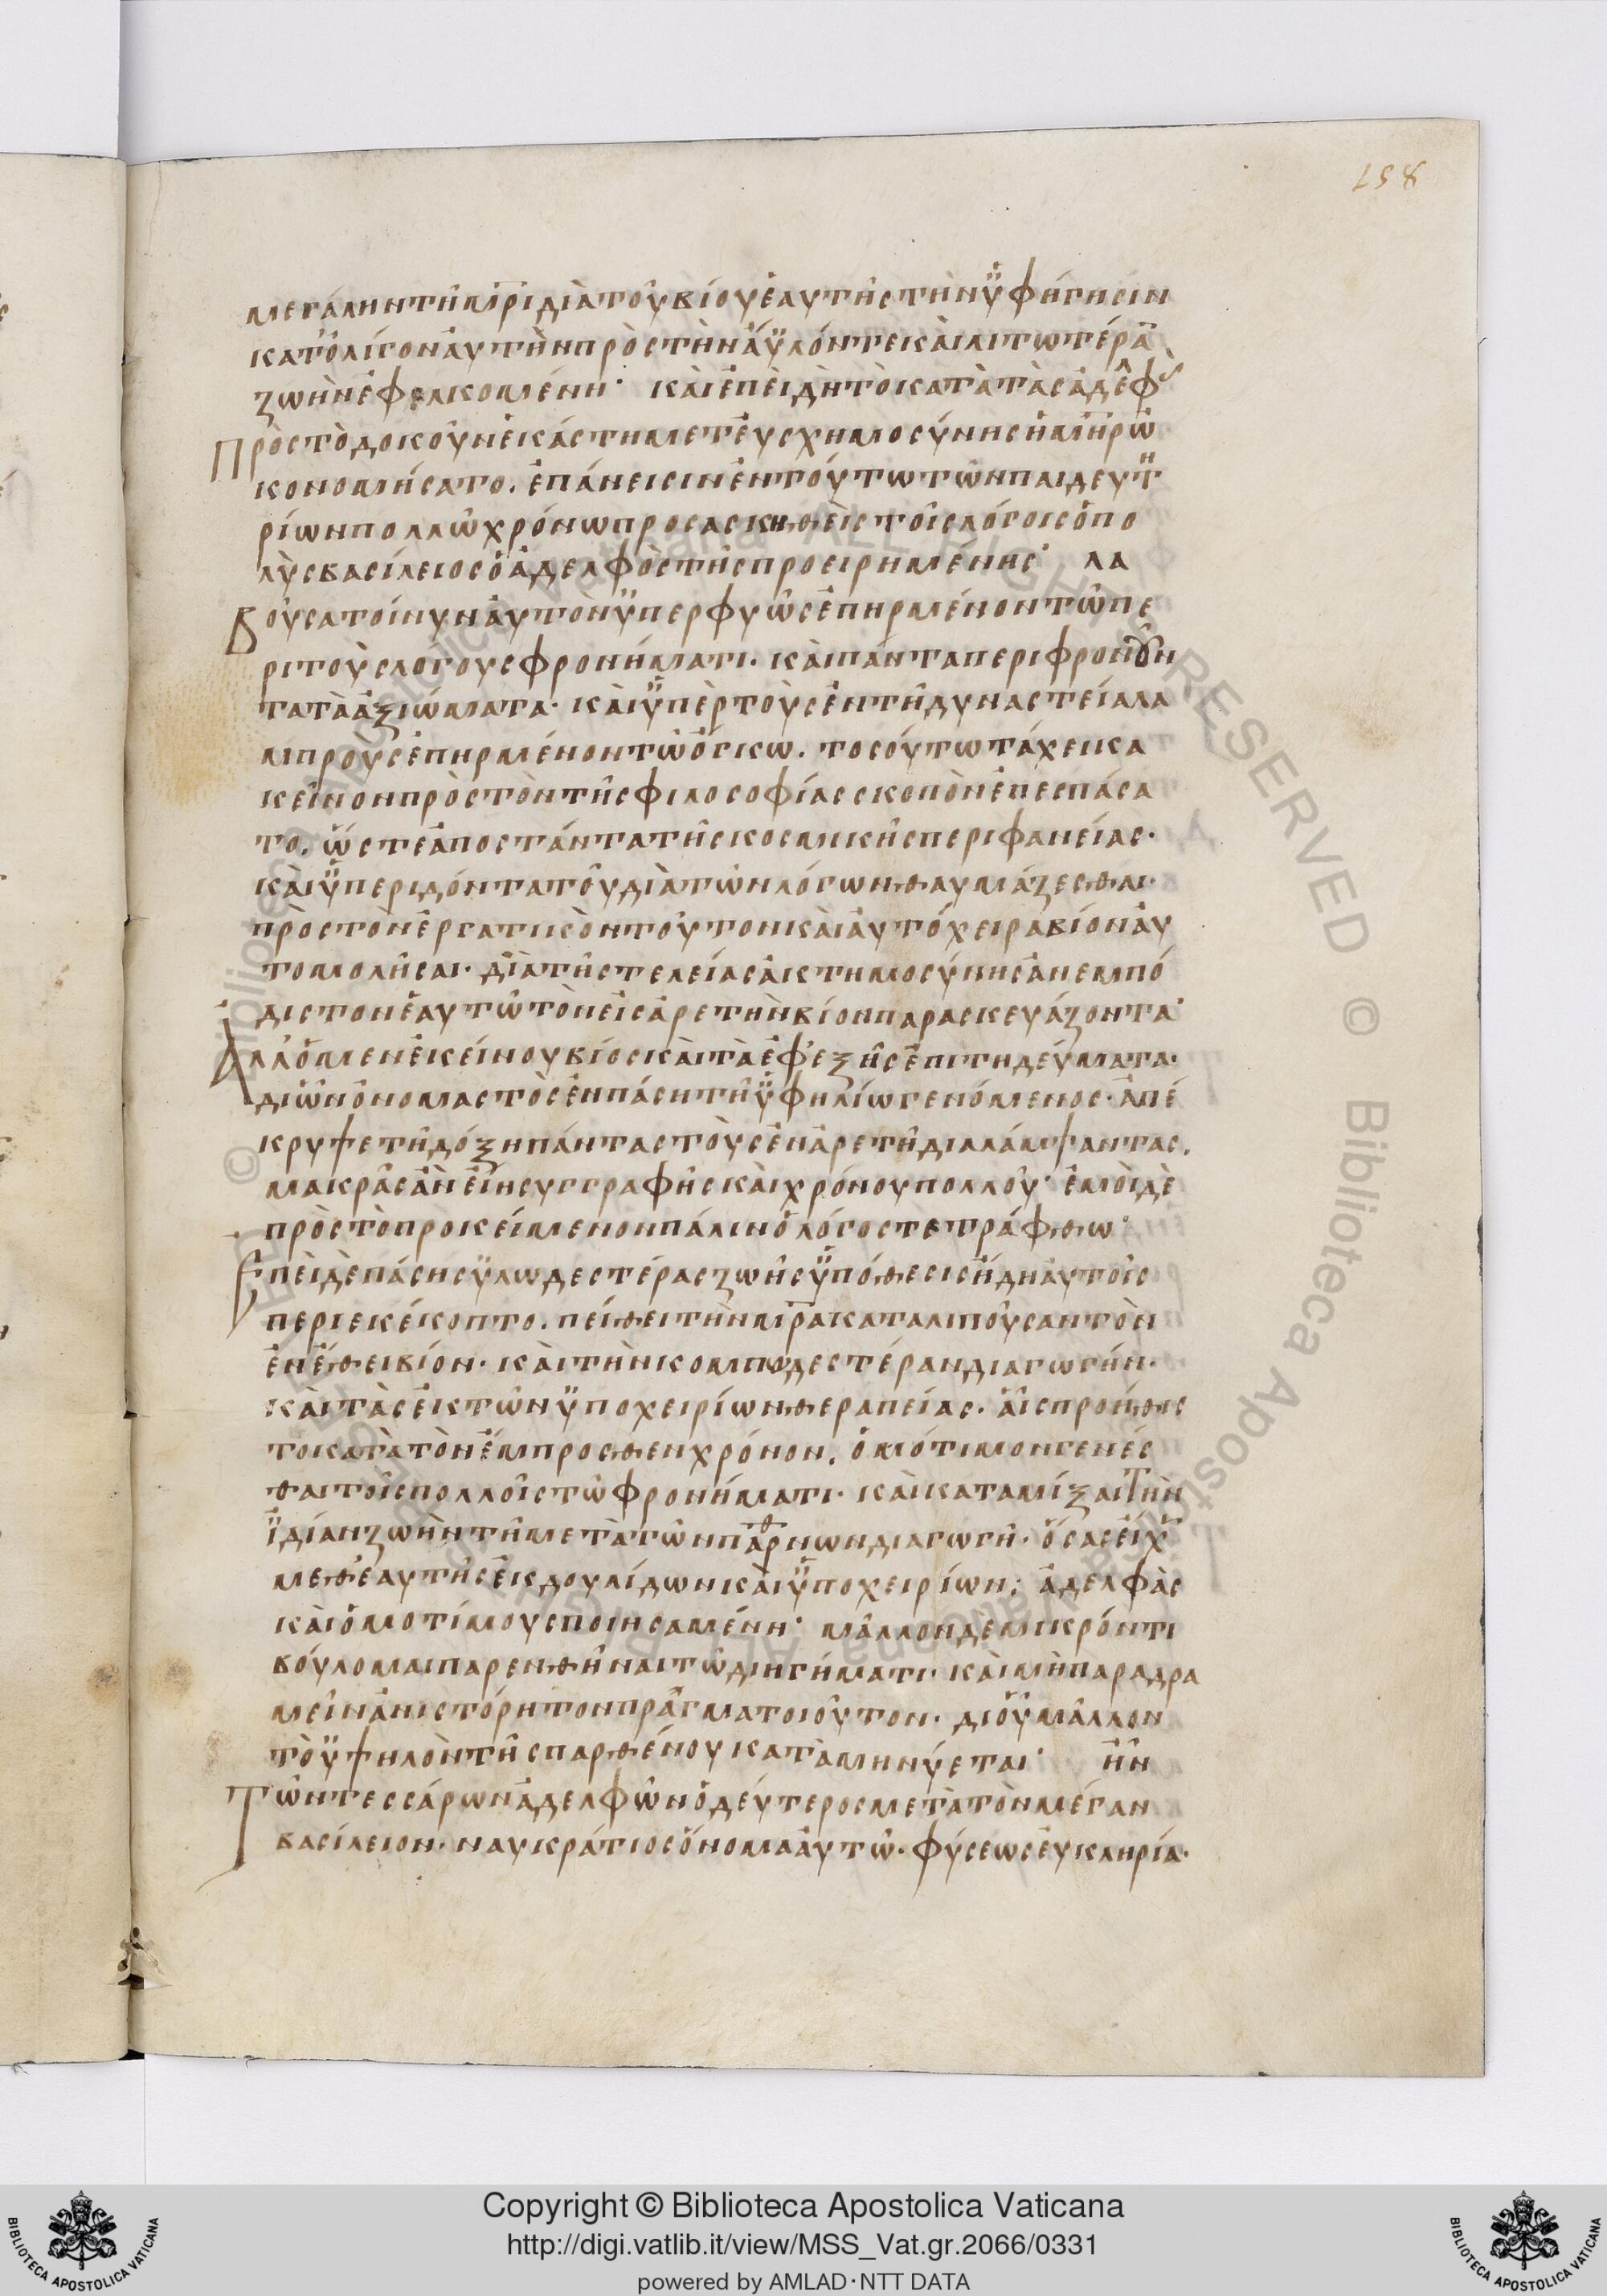 158
μεγάλην τῆ μρ̅ι διὰ τοῦ βίου ἑαυτῆς τὴν ὑφήγησιν
κατ᾽ ὀλίγον αὐτὴν πρὸς τὴν ἄϋλόν τε καὶ λιτωτέρα̅
ζωὴν ἐφελκομένη· καὶ ἐπειδὴ τὸ κατὰ τὰς ἀδελφ
πρὸς τὸ δοκοῦν ἑκάστη μετ᾽ εὐσχημοσύνης ἡ μ̅ηρ ὠ
κονομήσατο. ἐπάνεισιν ἐν τούτω τῶν παιδευτη
ρίων πολλῶ χρόνω προσασκηθεὶς τοῖς λόγοις ὁ πο
λὺς βασίλειος ὁ ἀδελφὸς τῆς προειρημένης· λα
βοῦσα τοίνυν αὐτὸν ὑπερφυῶς ἐπηρμένον τῶ πε
ρὶ τοὺς λόγους φρονήματι. καὶ πάντα περιφρονοῦν
τα τὰ ἀξιώματα· καὶ ὑπὲρ τοὺς ἐν τῆ δυναστεία λα
μπροὺς ἐπηρμένον τῶ ὄγκω. τοσούτω τάχει κα
κεῖνον πρὸς τὸν τῆς φιλοσοφίας σκοπὸν ἐπεσπάσα
το. ὥστε ἀποστάντα τῆς κοσμικῆς περιφανείας·
καὶ ὑπεριδόντα τοῦ διὰ τῶν λόγων θαυμάζεσθαι·
πρὸς τὸν ἐργατικὸν τοῦτον καὶ αὐτόχειρα βίον αὐ
τομολῆσαι· διὰ τῆς τελείας ἀκτημοσύνης ἀνεμπό
διστον ἑαυτῶ τὸν εἰς ἀρετὴν βίον παρασκευάζοντα·
ἀλλ᾽ ὁ μὲν ἐκείνου βίος καὶ τὰ ἐφεξῆς ἐπιτηδεύματα·
δι᾽ ὧν ὀνομαστὸς ἐν πάση τῆ ὑφηλίω γενόμενος· ἀπέ
κρυψε τῆ δόξη πάντας τοὺς ἐν ἀρετῆ διαλάμψαντας.
μακρᾶς ἂν εἴη συγγραφῆς καὶ χρόνου πολλοῦ· ἐμοὶ δὲ
πρὸς τὸ προκείμενον πάλιν ὁ λόγος τετράφθω·
ἐπεὶ δὲ πάσης ὑλωδεστέρας ζωῆς ὑπόθεσις ἤδη αὐτοῖς
περιεκέκοπτο. πείθει τὴν μρ̅α καταλιποῦσαν τὸν
ἐν ἔθει βίον· καὶ τὴν κομπωδεστέραν διαγωγήν.
καὶ τὰς ἐκ τῶν ὑποχειρίων θεραπείας. αἷς προσείθισ
το κατὰ τὸν ἔμπροσθεν χρόνον. ὁμότιμον γενέσ
θαι τοῖς πολλοῖς τῶ φρονήματι. καὶ καταμίξαι τὴν
ἰδίαν ζωὴν τῆ μετὰ τῶν παρθνων διαγωγῆ· ὅσας εἶχε
μεθ᾽ ἑαυτῆς ἐκ δουλίδων καὶ ὑποχειρίων; ἀδελφὰς
καὶ ὁμοτίμους ποιησαμένη· μᾶλλον δὲ μικρόν τι
βούλομαι παρενθῆναι τῶ διηγήματι. καὶ μὴ παραδρα
μεῖν ἀνιστόρητον πρᾶγμα τοιοῦτον. δι᾽ οὗ μᾶλλον
τὸ ὑψηλὸν τῆς παρθένου καταμηνύεται· ἦν
τῶν τεσσάρων ἀδελφῶν ὁ δεύτερος μετὰ τὸν μέγαν
βασίλειον. ναυκράτιος ὄνομα αὐτῶ. φύσεως εὐκληρία·
Copyright © Biblioteca Apostolica Vaticana
http://digi.vatlib.it/view/MSS_Vat.gr.2066/0331
powered by AMLAD·NTT DATA